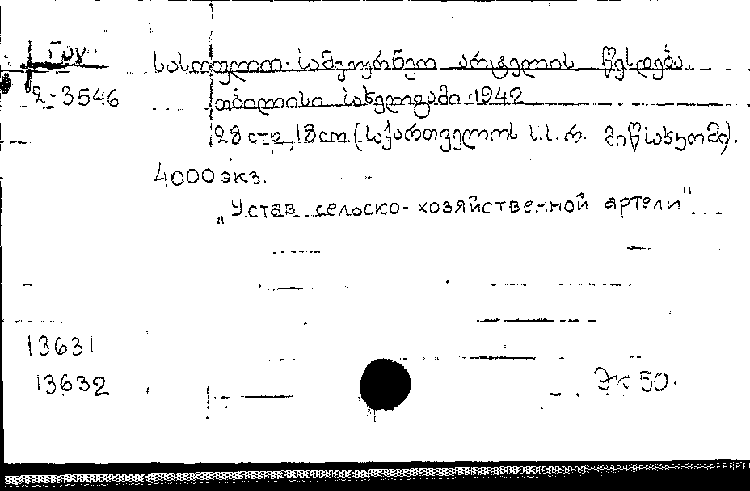 სასოფლო-სამეურნეო არტელის წესდება
2-3546 თბილისი სახელგამი 1942
28 გვ. 18cm. (საქართველოს ს.ს.რ. მიწსახკომი).
4000 экз.
„Устав сельско-хозяйственной артели"
13631
13632 Эк 50.